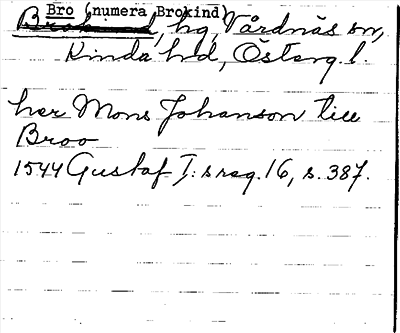 Bro (numera Brokind)
Brokind, hg, Vårdnäs sn,
Kinda hd, Österg. l.
her Mons Johanson till
Broo
1544 Gustaf I:s reg. 16, s. 387.